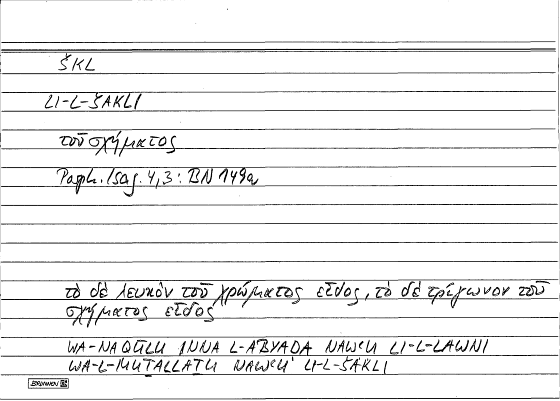 ŠKL
LI-L-ŠAKLI
τοῦ σχήματος
Porph. Isag. 4,3: BN 149a
τὸ δὲ λευκὸν τοῦ χρώματος εἶδος, τὸ δὲ τρίγωνον τοῦ
σχήματος εἶδος
WA-NAQŪLU INNA L-ABYAḌA NAWʿU LI-L-LAWNI
WA-L-MUṮALLAṮU NAWʿU LI-L-ŠAKLI
BRUNNEN